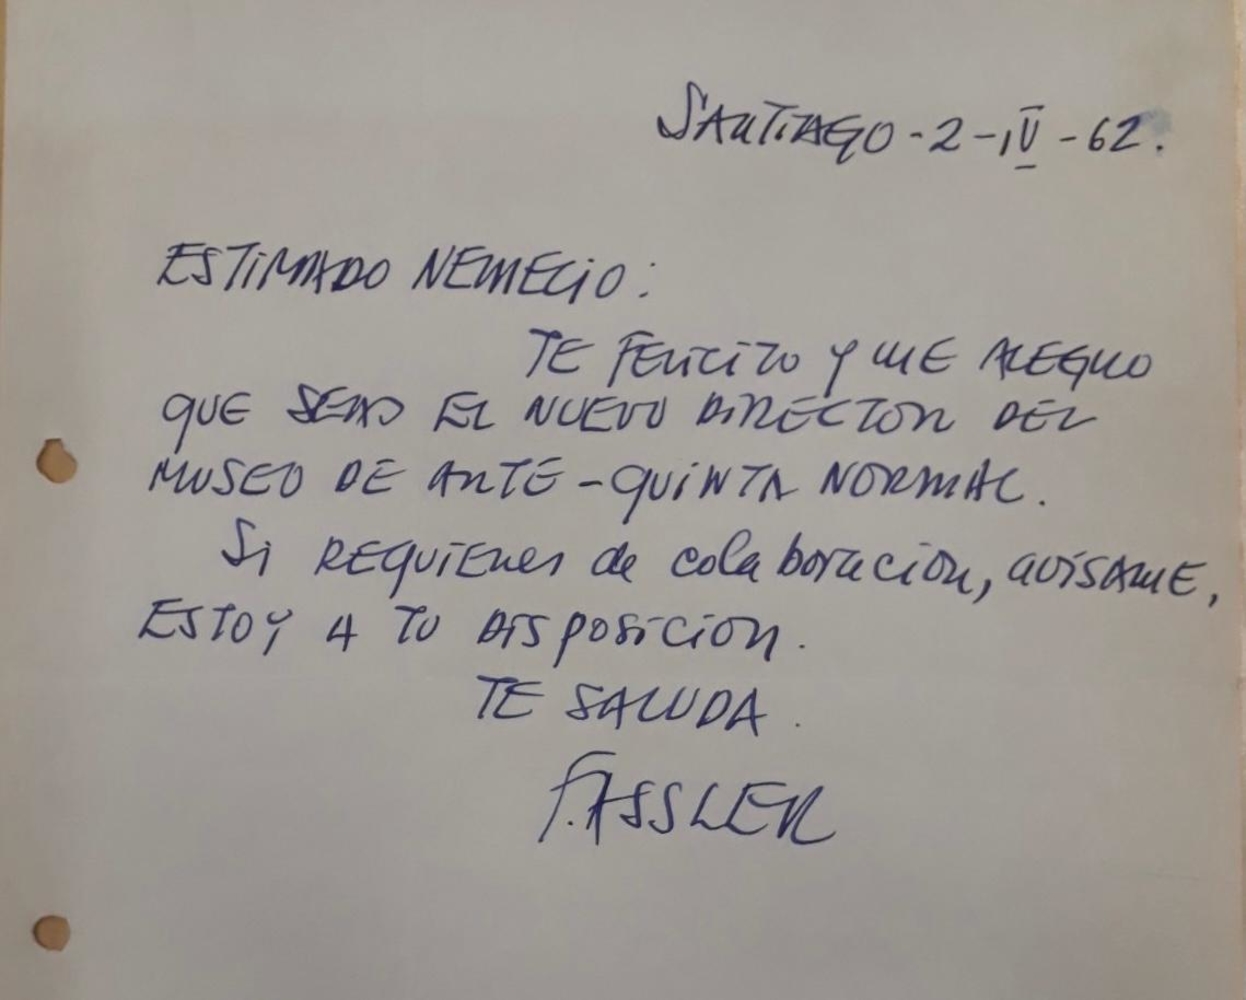 SANTIAGO - 2 - IV - 62.
ESTIMADO NEMECIO:
TE FELICITO Y ME ALEGRO
QUE SEAS EL NUEVO DIRECTOR DEL
MUSEO DE ARTE - QUINTA NORMAL.
Si REQUIERES de colaboración, avísame,
ESTOY A TU DISPOSICIÓN.
TE SALUDA.
FASSLER